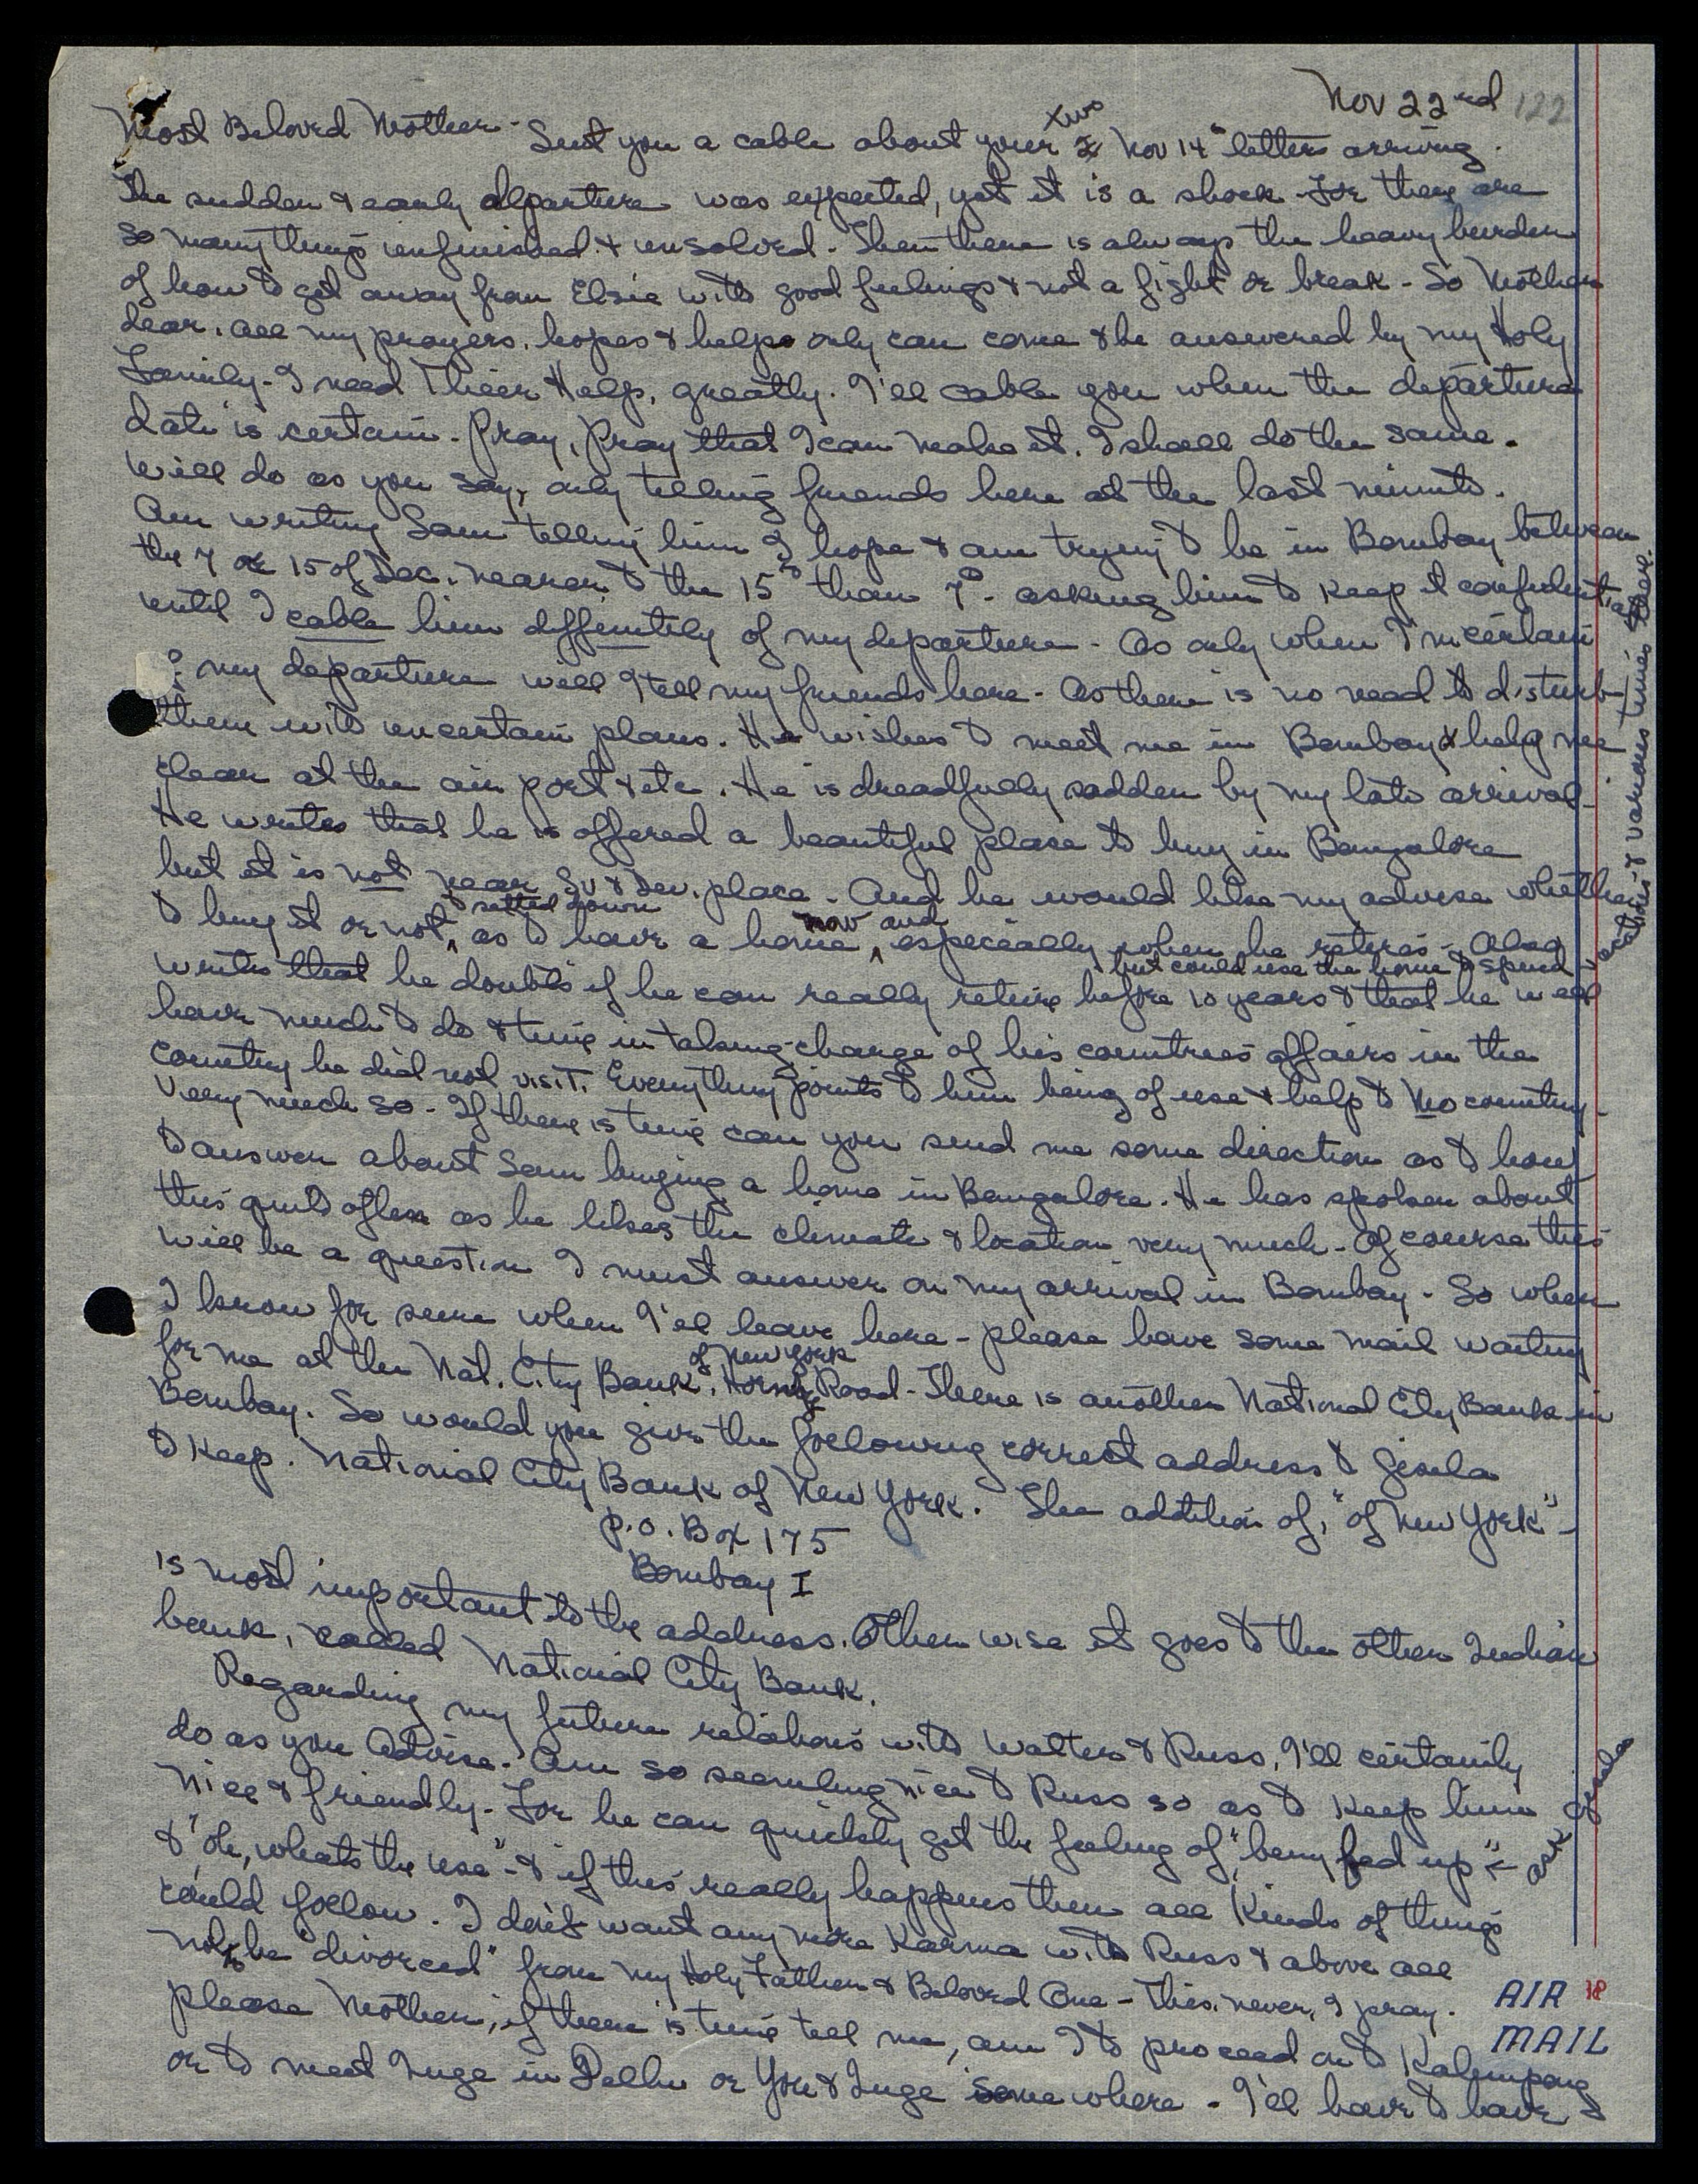 Nov 22nd 122
Most Beloved Mother - Sent you a cable about your two Nov 14th letters arriving.
The sudden & early departure was expected, yet it is a shock - For there are
so many things unfinished & unsolved. Then there is always the heavy burden
of how to get away from Elsie with good feelings & not a fight or break - So Mother
dear, all my prayers, hopes & helps only can come & be answered by my Holy
Family - I need Their Help, greatly. I'll cable you when the departure
date is certain. Pray, Pray that I can make it. I shall do the same.
Will do as you say, only telling friends here at the last minute.
Am writing Sam telling him I hope & am trying to be in Bombay between
the 7 or 15 of Dec. nearer to the 15th than 7th - asking him to keep it confidential
until I cable him diffenitely of my departure - As only when I'm certain
of my departure will I tell my friends here - As there is no need to disturb
them with uncertain plans. He wishes to meet me in Bombay & help me
clear at the air port & etc. He is dreadfully sadden by my late arrival -
He writes that he is offered a beautiful place to buy in Bangalore
but it is not near Sv & Dev. place - And he would like my advise whether
to buy it or not, as to have a home to settled down now and, especially when he retires - Also
writes that he doubts if he can really retire before 10 years & that he will
but could use the home & spend vacations & various times there.
have much to do & time in taking charge of his countries affairs in the
country he did not visit. Everything points to him being of use & help to No country -
Very much so - If there is time can you send me some direction as to how
to answer about Sam buying a home in Bangalore. He has spoken about
this quite often as he likes the climate & location very much - Of course this
will be a question I must answer on my arrival in Bombay - So when
I know for sure when I'll leave here - please have some mail waiting
for me at the Nat. City Bank of New York, Hornby Road - There is another National City Bank in
Bombay. So would you give the following correct address to Gisela
to keep. National City Bank of New York. The addition of, "of New York" -
P.O. Box 175
Bombay I
is most important to the address. Other wise it goes to the other Indian
bank, called National City Bank.
Regarding my future relations with Walter & Russ, I'll certainly
do as you Advise. Am so seemling nice to Russ so as to keep him
nice & friendly - For he can quickly get the feeling of "being fed up" ← ask Gisela
& "oh, whats the use" - & if this really happens then all kinds of things
could follow. I don't want any more Karma with Russ & above all
not to be "divorced" from my Holy Father & Beloved One - This, never, I pray.
Please Mother, if there is time tell me, am I to proceed on to Kalimpong
or to meet Inge in Delhi or You & Inge some where - I'll have to have
AIR 18
MAIL